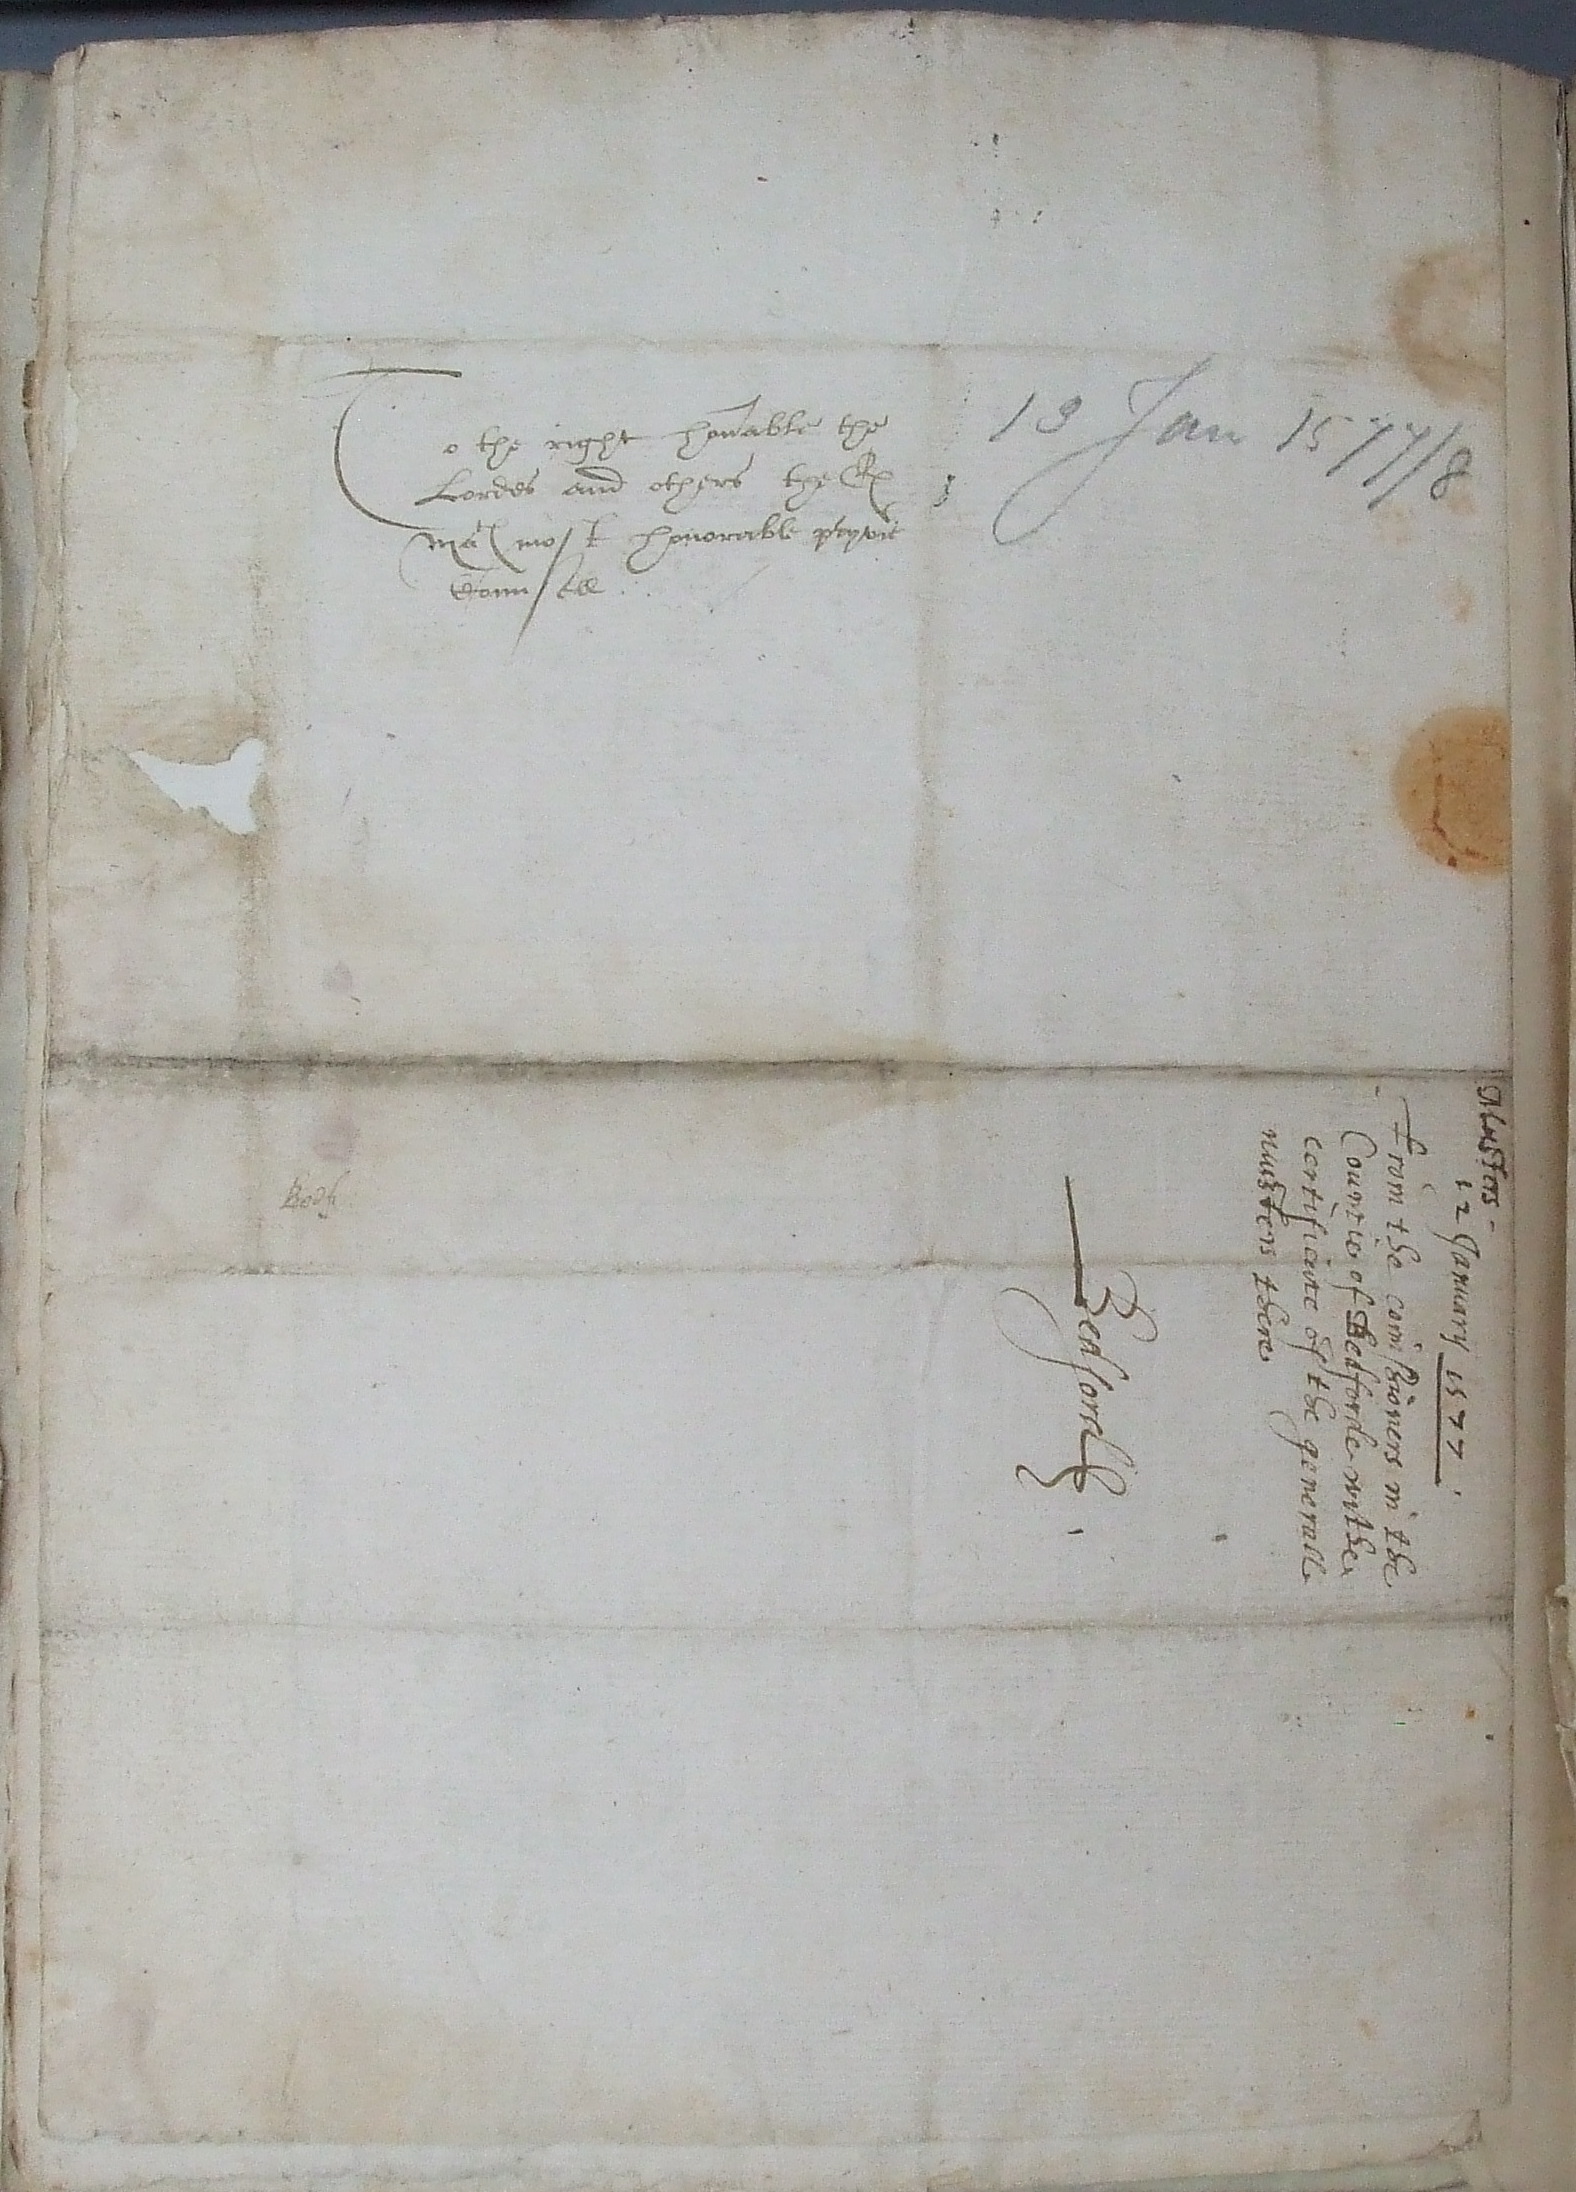 To the right honable the
Lordes and others the Q
mats most honorable pryvie
Counsell
13 Jan 1577/8
Musters
12 January 1577
From the comissioners in the
Countie of Bedforde withe
certificate of the generall
musters there
Bedford
Bedf